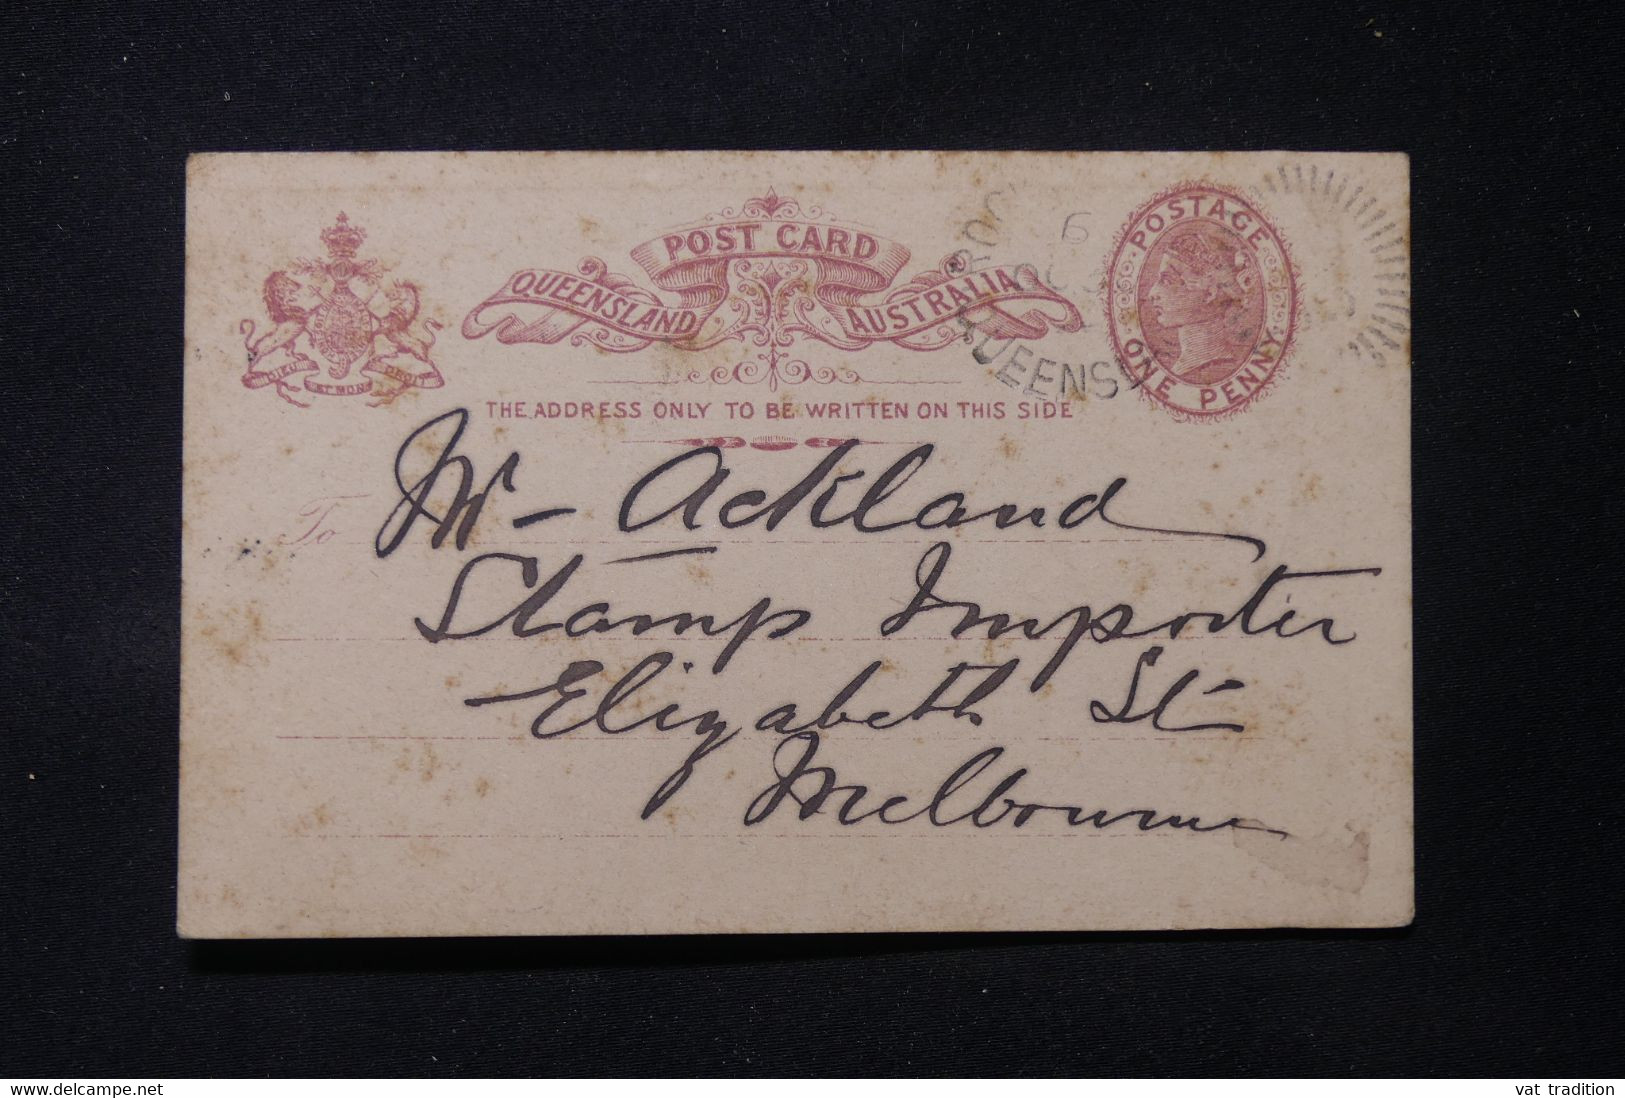 POST CARD
QUEENSLAND AUSTRALIA
THE ADDRESS ONLY TO BE WRITTEN ON THIS SIDE
POSTAGE
ONE PENNY
DIEU ET MON DROIT
6
QUEENS
To Mr - Ackland
Stamp Importer
Elizabeth St
Melbourne
www.delcampe.net
vat tradition